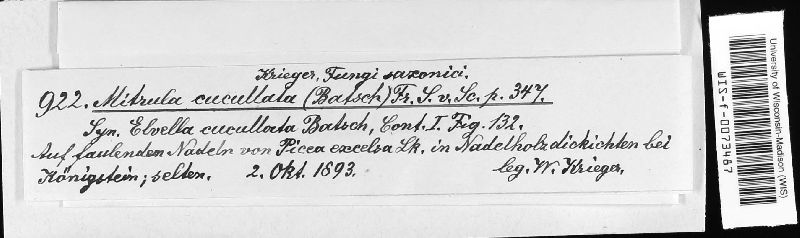 Krieger, Fungi saxonici.
922. Mitrula cucullata (Batsch) Fr. S. v. Sc. p. 347.
Syn. Elvella cucullata Batsch, Cont. I. Fig. 132.
Auf faulenden Nadeln von Picea excelsa Lk. in Nadelholzdickichten bei
Königstein; selten. 2. Okt. 1893. leg. W. Krieger.
University of Wisconsin-Madison (WIS)
WIS-f-0073467